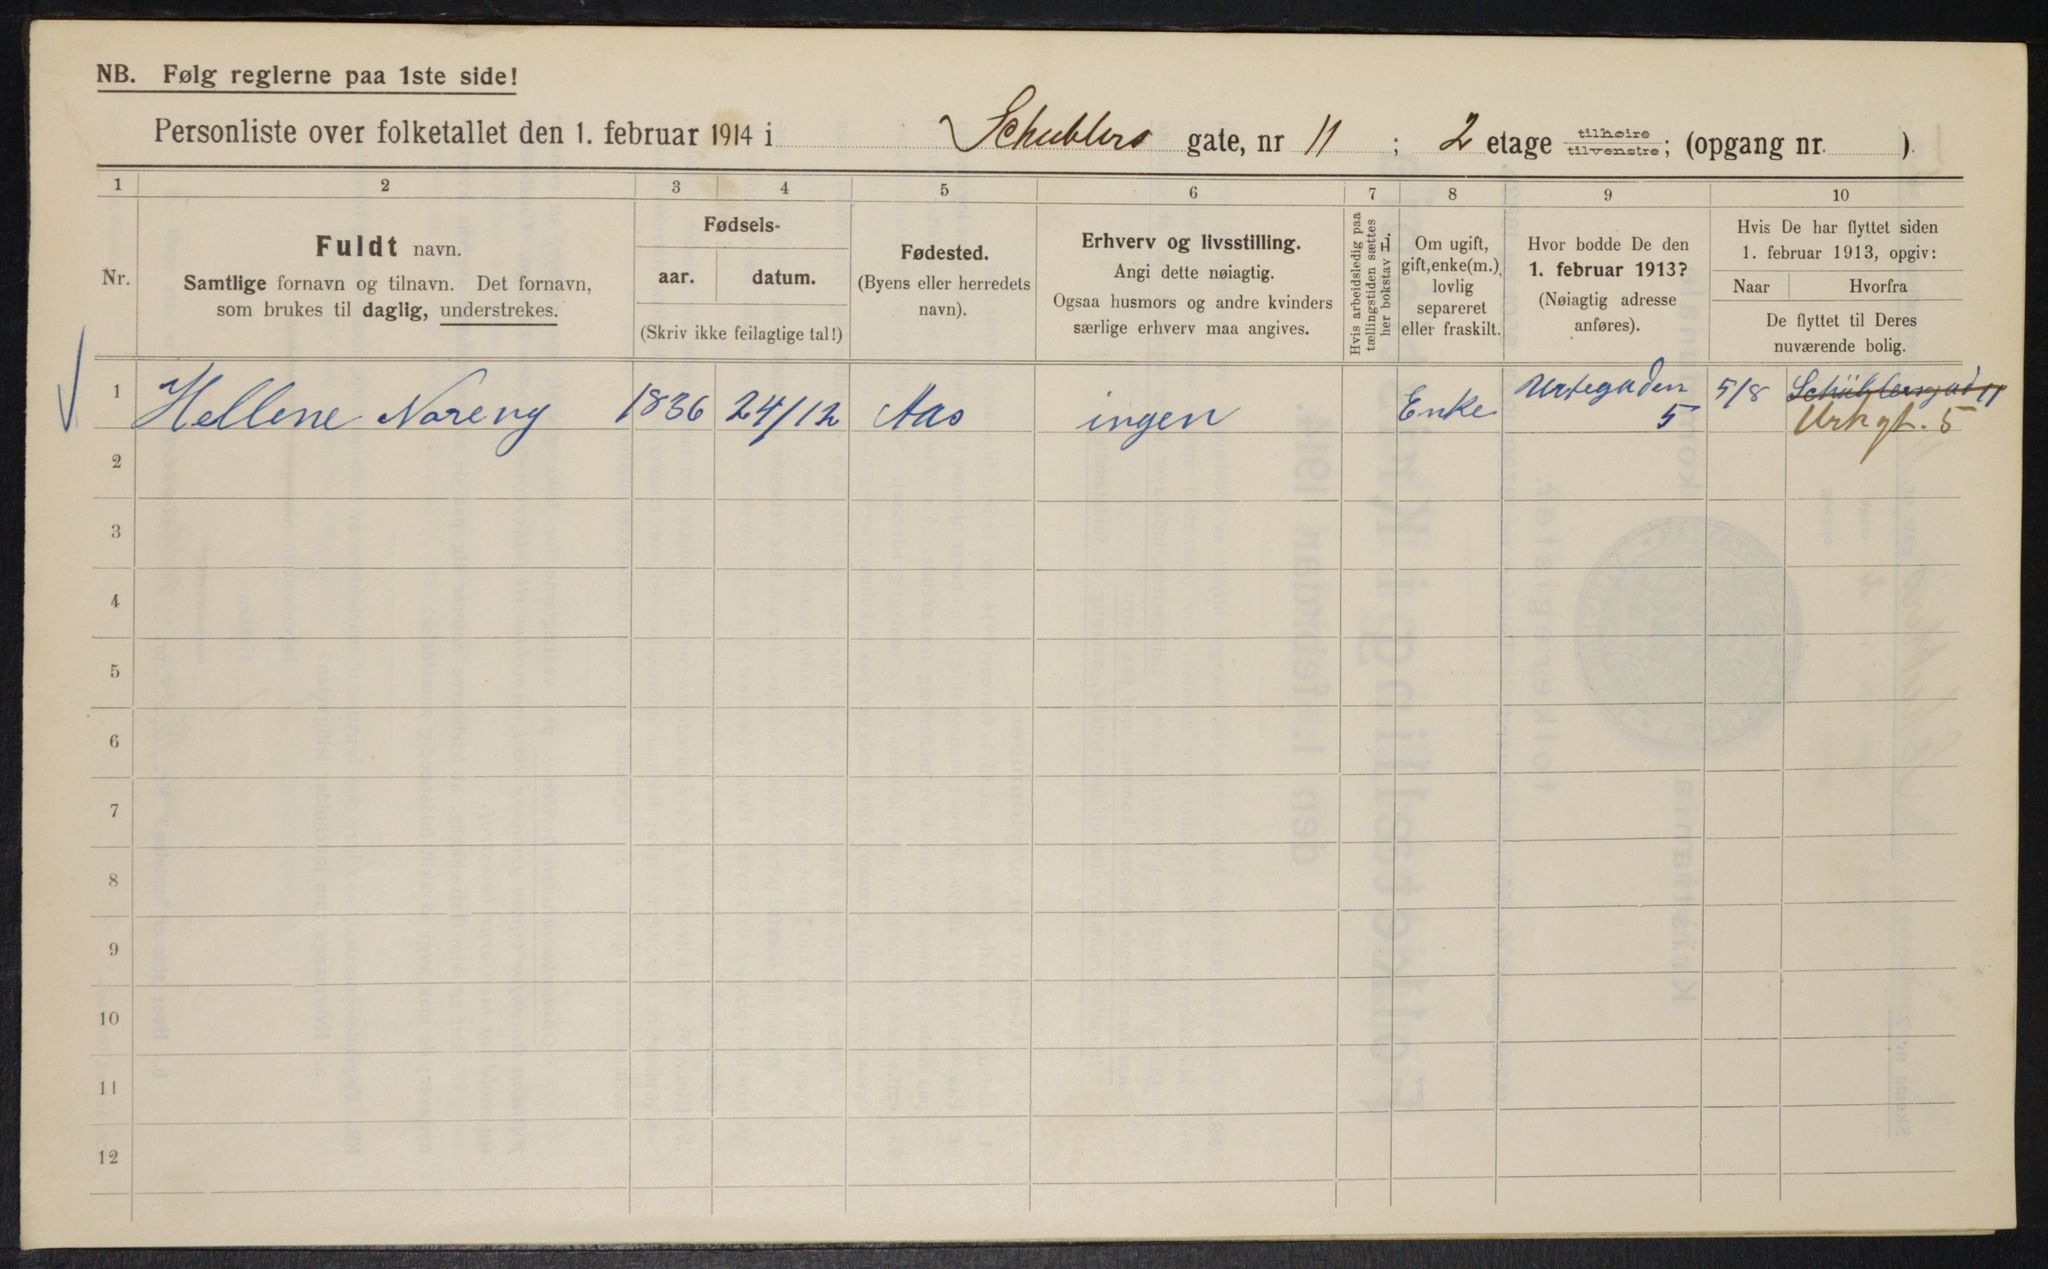 NB. Følg reglerne paa 1ste side!
Personliste over folketallet den 1. februar 1914 i Schüblers gate, nr 11 ; 2 etage tilhøire / tilvenstre; (opgang nr. ).
1 2 3 4 5 6 7 8 9 10
Nr.
Fuldt navn.
Samtlige fornavn og tilnavn. Det fornavn,
som brukes til daglig, understrekes.
Fødsels-
aar. datum.
(Skriv ikke feilagtige tal!)
Fødested.
(Byens eller herredets
navn).
Erhverv og livsstilling.
Angi dette nøiagtig.
Ogsaa husmors og andre kvinders
særlige erhverv maa angives.
Hvis arbeidsledig paa
tællingstiden sættes
her bokstav H.
Om ugift,
gift, enke(m.),
lovlig
separeret
eller fraskilt.
Hvor bodde De den
1. februar 1913?
(Nøiagtig adresse
anføres).
Hvis De har flyttet siden
1. februar 1913, opgiv:
Naar Hvorfra
De flyttet til Deres
nuværende bolig.
1 Hellene Noreng 1836 24/12 Aas ingen Enke Urtegaden 5 5/8 Schüblersgad 11
Urtegt. 5
2
3
4
5
6
7
8
9
10
11
12